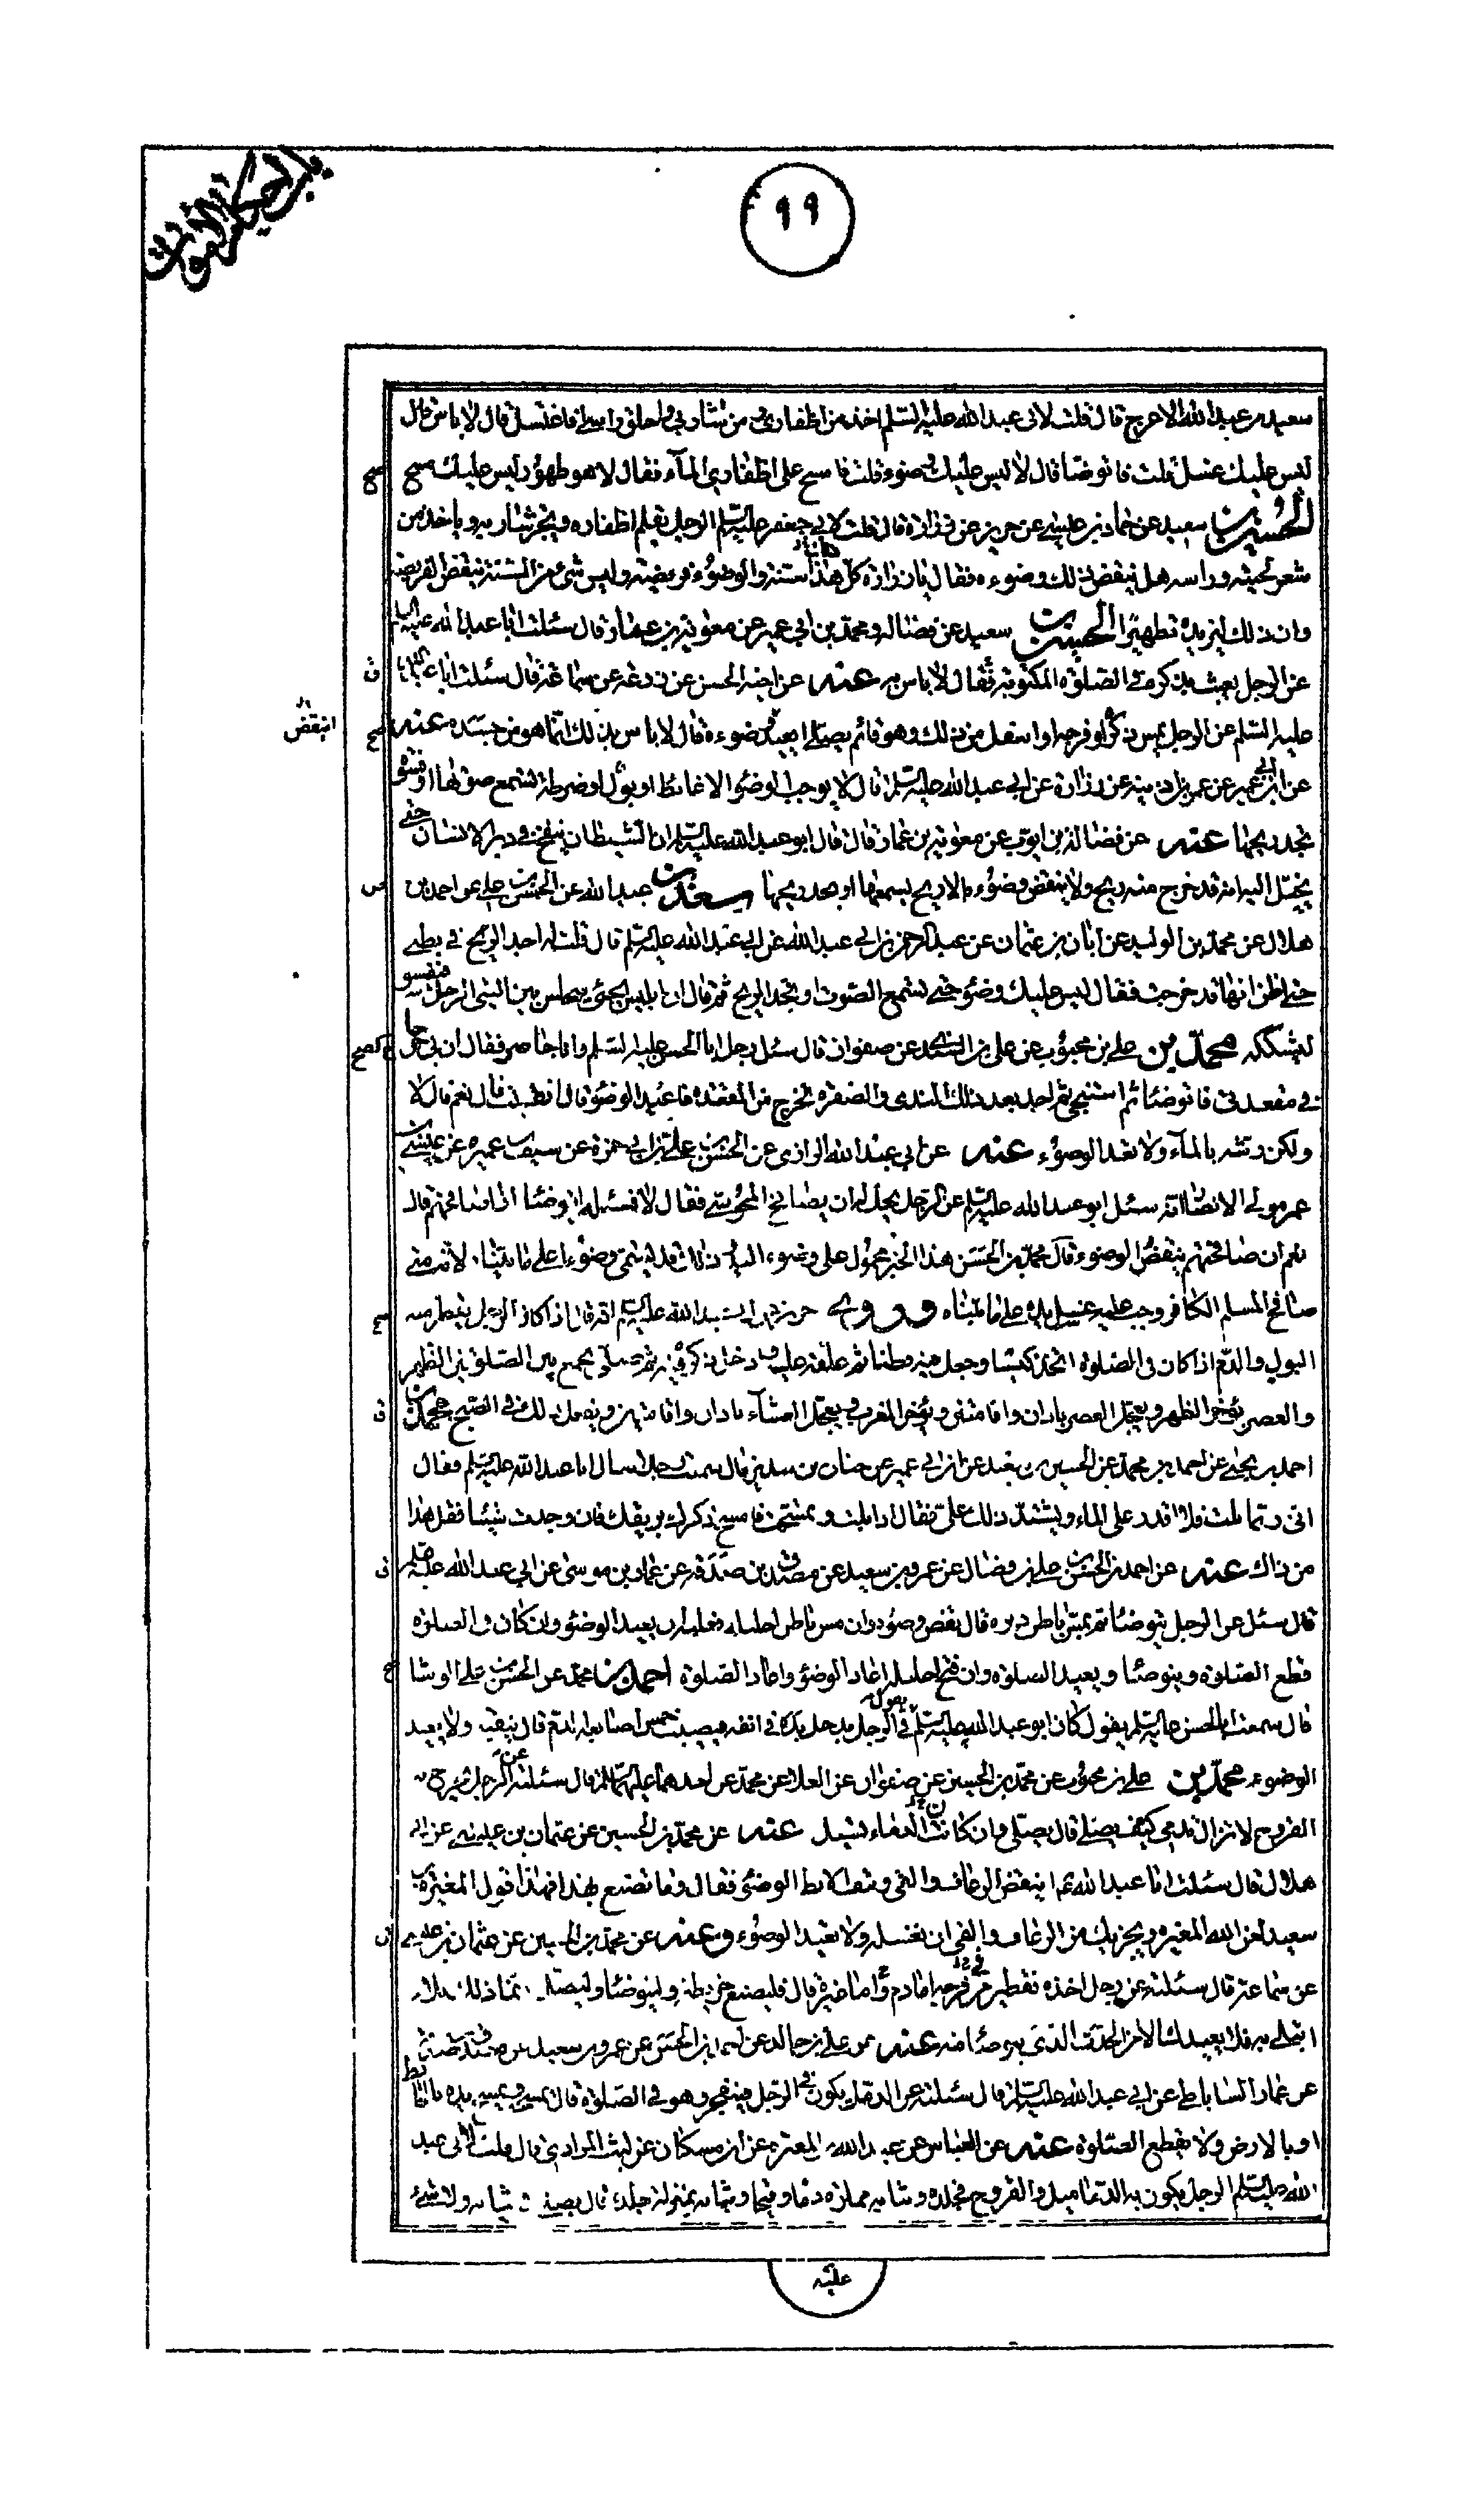 ٩٩
سعيد بن عبد الله الاعرج قال قلت لابى عبد الله عليه السلم اخذ من اظفارى و من شاربى و احلق راسى افاغتسل قال لا باس
ليس عليك غسل قلت فاتوضأ قال لا ليس عليك وضوء قلت فامسح على اظفارى المآء فقال لا هو طهور ليس عليك مسح
الحسين بن سعيد عن حماد بن عيسى عن حريز عن زرارة قال قلت لابى جعفر عليه السلم الرجل يقلم اظفاره ويجز شاربه وياخذ من
شعر لحيته وراسه هل ينقض ذلك وضوءه فقال يا زرارة كل هذا سنة والوضوء فريضة وليس شئ من السنة ينقض الفريضة
وان ذلك ليزيده تطهيرا الحسين بن سعيد عن فضالة ومحمد بن ابى عمير عن معوية بن عمار قال سئلت ابا عبد الله عليه السلم
عن الرجل يعبث بذكره فى الصلوة المكتوبة فقال لا باس به عنه عن اخيه الحسن عن زرعة عن سماعة قال سئلت ابا عبد الله
عليه السلم عن الرجل يمس ذكره او فرجه او اسفل من ذلك وهو قائم يصلى ايعيد وضوءه قال لا باس بذلك انما هو من جسده عنه
انتقض
عن ابن ابى عمير عن عمر بن اذينة عن زرارة عن ابى عبد الله عليه السلم قال لا يوجب الوضوء الا غائط او بول او ضرطة تسمع صوتها او فسوة
تجد ريحها عنه عن فضالة بن ايوب عن معوية بن عمار قال قال ابو عبد الله عليه السلم ان الشيطان ينفخ فى دبر الانسان حتى
يخيل اليه انه قد خرج منه ريح ولا ينقض وضوءه الا ريح يسمعها او يجد ريحها سعد بن عبد الله عن الحسن بن على عن احمد بن
هلال عن محمد بن الوليد عن ابان بن عثمان عن عبد الرحمن بن ابى عبد الله عن ابى عبد الله عليه السلم قال قلت له اجد الريح فى بطنى
حتى اظن انها قد خرجت فقال ليس عليك وضوء حتى تسمع الصوت او تجد الريح ثم قال ان ابليس يجئ فيجلس بين اليتى الرجل فيفسو
ليشككه محمد بن على بن محبوب عن على بن السندى عن صفوان قال سئل رجل ابا الحسن عليه السلم وانا حاضر فقال ان بى جرحا
فى مقعدتى فاتوضأ ثم استنجى ثم اجد بعد ذلك الندى والصفرة تخرج من المقعدة فاعيد الوضوء قال انقيت قال نعم قال لا
ولكن رشه بالمآء ولا تعد الوضوء عنه عن ابى عبد الله الرازى عن الحسن بن على بن ابى حمزة عن سيف بن عميرة عن عيسى بن
عمر مولى الانصار انه سئل ابو عبد الله عليه السلم عن الرجل يحل له ان يصافح المجوسى فقال لا فسئله ايتوضأ اذا صافحهم قال
نعم ان مصافحتهم ينقض الوضوء قال محمد بن الحسن هذا الخبر محمول على وضوء اليد لان ذلك قد يسمى وضوءا على ما بيناه لانه متى
صافح المسلم الكافر وجب عليه غسل يده على ما بيناه وروى حريز عن ابى عبد الله عليه السلم انه قال اذا كان الرجل يقطر منه
البول والدم اذا كان فى الصلوة اتخذ كيسا وجعل فيه قطنا ثم علقه عليه وادخل ذكره فيه ثم صلى يجمع بين الصلوتين الظهر
والعصر يؤخر الظهر ويعجل العصر باذان واقامتين ويؤخر المغرب ويعجل العشآء باذان واقامتين ويفعل ذلك فى الصبح محمد بن
احمد بن يحيى عن احمد بن محمد عن الحسين بن سعيد عن ابن ابى عمير عن حنان بن سدير قال سمعت رجلا سال ابا عبد الله عليه السلم فقال
انى ربما بلت فلا اقدر على الماء ويشتد ذلك على فقال اذا بلت وتمسحت فامسح ذكرك بريقك فان وجدت شيئا فقل هذا
من ذاك عنه عن احمد بن الحسن بن على بن فضال عن عمرو بن سعيد عن مصدق بن صدقة عن عمار بن موسى عن ابى عبد الله عليه السلم
قال سئل عن الرجل يتوضأ ثم يمس باطن دبره قال نقض وضوءه وان مس باطن احليله فعليه ان يعيد الوضوء وان كان فى الصلوة
قطع الصلوة ويتوضأ ويعيد الصلوة وان فتح احليله اعاد الوضوء واعاد الصلوة احمد بن محمد عن الحسن بن على الوشا
قال سمعت ابا الحسن عليه السلم يقول كان ابو عبد الله عليه السلم يقول فى الرجل يدخل يده فى انفه فيصيب خمس اصابعه الدم قال ينقيه ولا يعيد
الوضوء محمد بن على بن محبوب عن محمد بن الحسين عن صفوان عن العلا عن محمد عن احدهما عليهما السلم قال سئلته عن الرجل
القروح لا تزال تدمى كيف يصلى قال يصلى وان كانت الدماء تسيل عنه عن محمد بن الحسين عن عثمان بن عيسى عن ابى
هلال قال سئلت ابا عبد الله اينقض الرعاف والقى ونتف الابط الوضوء فقال وما تصنع بهذا فهذا قول المغيرة بن
سعيد لعن الله المغيرة ويجزيك من الرعاف والقى ان تغسله ولا تعيد الوضوء وعنه عن محمد بن الحسين عن عثمان بن عيسى
عن سماعة قال سئلته عن رجل اخذه تقطير من فرجه اما دم واما غيره قال فليصنع خريطة وليتوضأ وليصل انما ذلك بلاء
ابتلى به فلا يعيدن الا من الحدث الذى يتوضأ منه عنه عن على بن خالد عن احمد بن الحسن عن عمرو بن سعيد عن مصدق بن صدقة
عن عمار الساباطى عن ابى عبد الله عليه السلم قال سئلته عن الدمل يكون فى الرجل فينفجر وهو فى الصلوة قال يمسحه ويمسح يده بالحائط
او بالارض ولا يقطع الصلوة عنه عن العباس عن عبد الله بن المغيرة عن ابن مسكان عن ليث المرادى قال قلت لابى عبد
الله عليه السلم الرجل يكون به الدماميل والقروح فجلده وثيابه مملوة دما وقيحا وثيابه بمنزلة جلده قال يصلى فى ثيابه ولا شئ
عليه